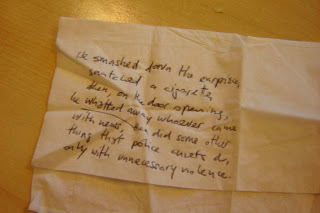 He smashed down the surprise,
snatched a cigarette,
then, on the door opening,
he whatted away whoever came
with news, then did some other
thing that police cadets do,
only with unnecessary violence.